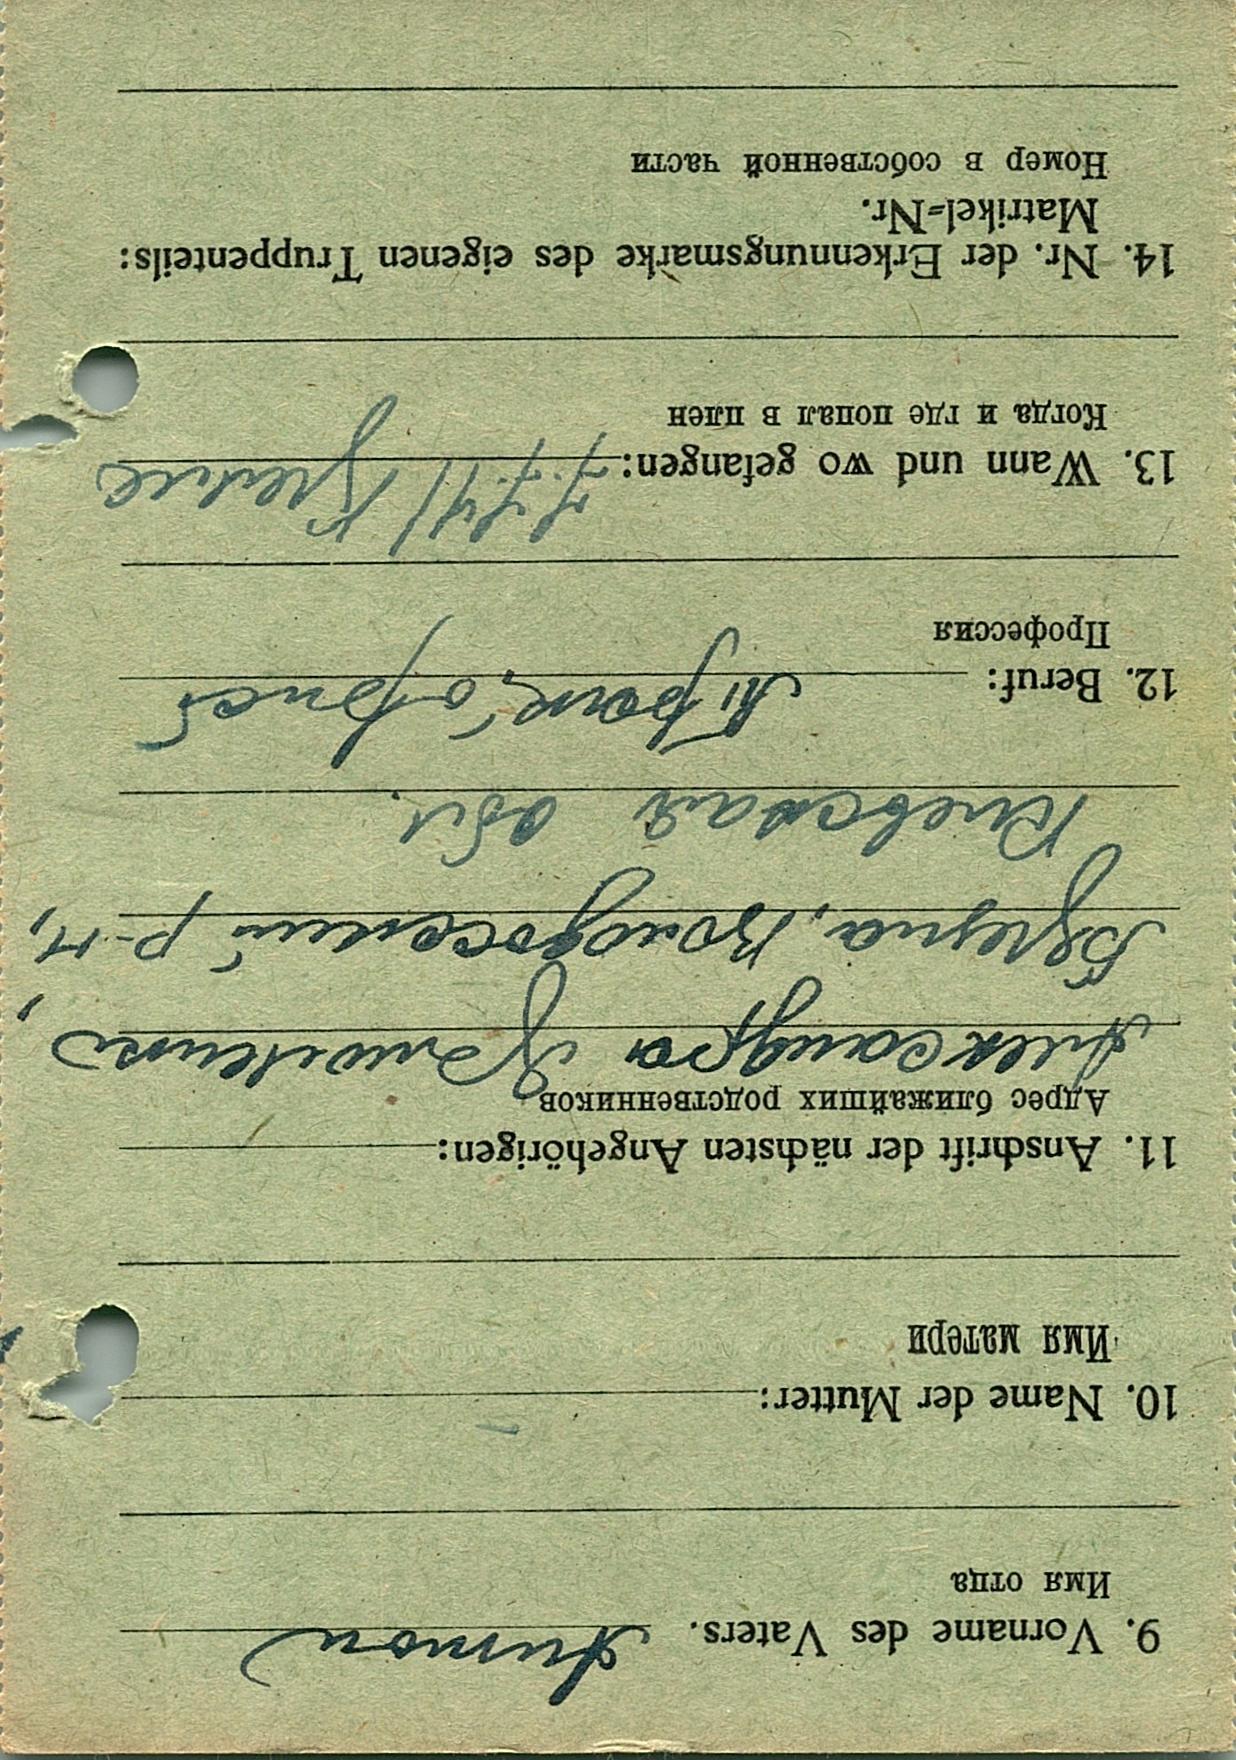 9. Vorname des Vaters. Антон
Имя отца
10. Name der Mutter: —
Имя матери
11. Anschrift der nächsten Angehörigen:
Адрес ближайших родственников
Александра
р-н,
Киевская обл.
12. Beruf:
Профессия
13. Wann und wo gefangen:
Когда и где попал в плен
14. Nr. der Erkennungsmarke des eigenen Truppenteils:
Matrikel=Nr.
Номер в собственной части